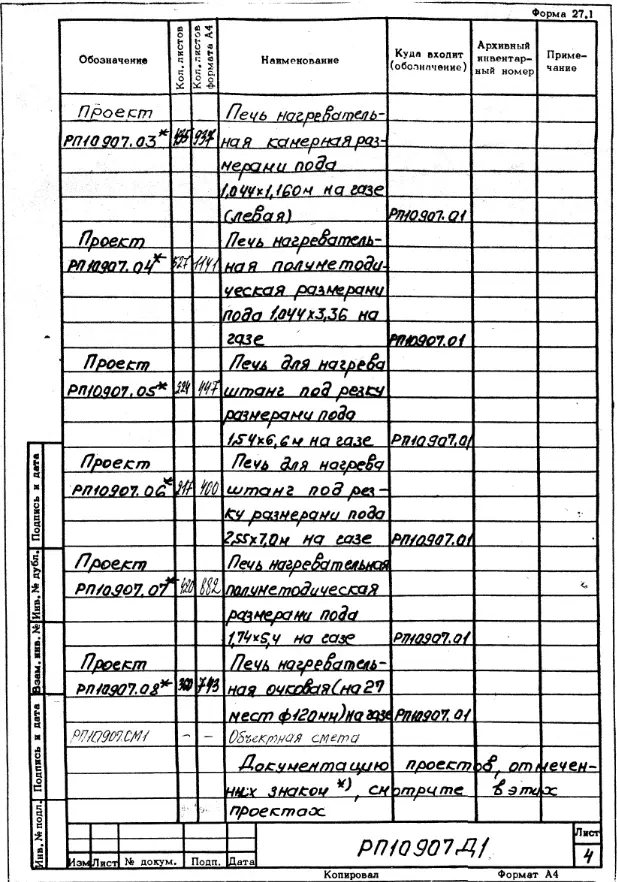 Форма 27.1
Обозначение Кол. листов Кол. листов формата А4 Наименование Куда входит (обозначение) Архивный инвентарный номер Примечание
Проект Печь нагреватель-
РП10907.03* ная камерная раз-
мерами пода
1,044х1,160м на газе
(левая) РП10907.01
Проект Печь нагреватель-
РП10907.04* 527 1141 ная полуметоди-
ческая размерами
пода 1,044х3,36 на
газе РП10907.01
Проект Печь для нагрева
РП10907.05* 324 447 штанг под резку
размерами пода
1,54х6,6м на газе РП10907.01
Проект Печь для нагрева
РП10907.06* 317 400 штанг под рез-
ку размерами пода
2,55х7,0м на газе РП10907.01
Проект Печь нагревательная
РП10907.07* 620 882 полуметодическая
размерами пода
1,74х5,4 на газе РП10907.01
Проект Печь нагреватель-
РП10907.08* 743 ная очковая (на 27
мест ф120мм) на газе РП10907.01
РП10907.СМ1 - - Объектная смета
Документацию проектов, отмечен-
ных знаком *), смотрите в этих
проектах
Инв. № подл. Подпись и дата Взам. инв. № Инв. № дубл. Подпись и дата
Изм Лист № докум. Подп. Дата
РП10907Д1
Лист
4
Копировал Формат А4